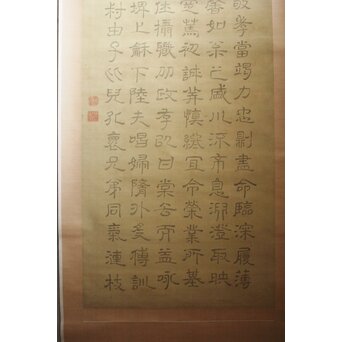 敬孝當竭力忠則盡命臨深履薄
馨如松之盛川流不息淵澄取映
定篤初誠美慎終宜令榮業所基
仕攝職從政存以甘棠去而益詠
卑上龢下睦夫唱婦隨外受傅訓
叔猶子比兒孔懷兄弟同氣連枝